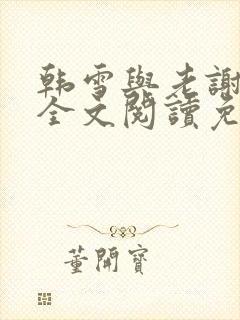 韩雪與老謝
全文閱讀免
董開寶